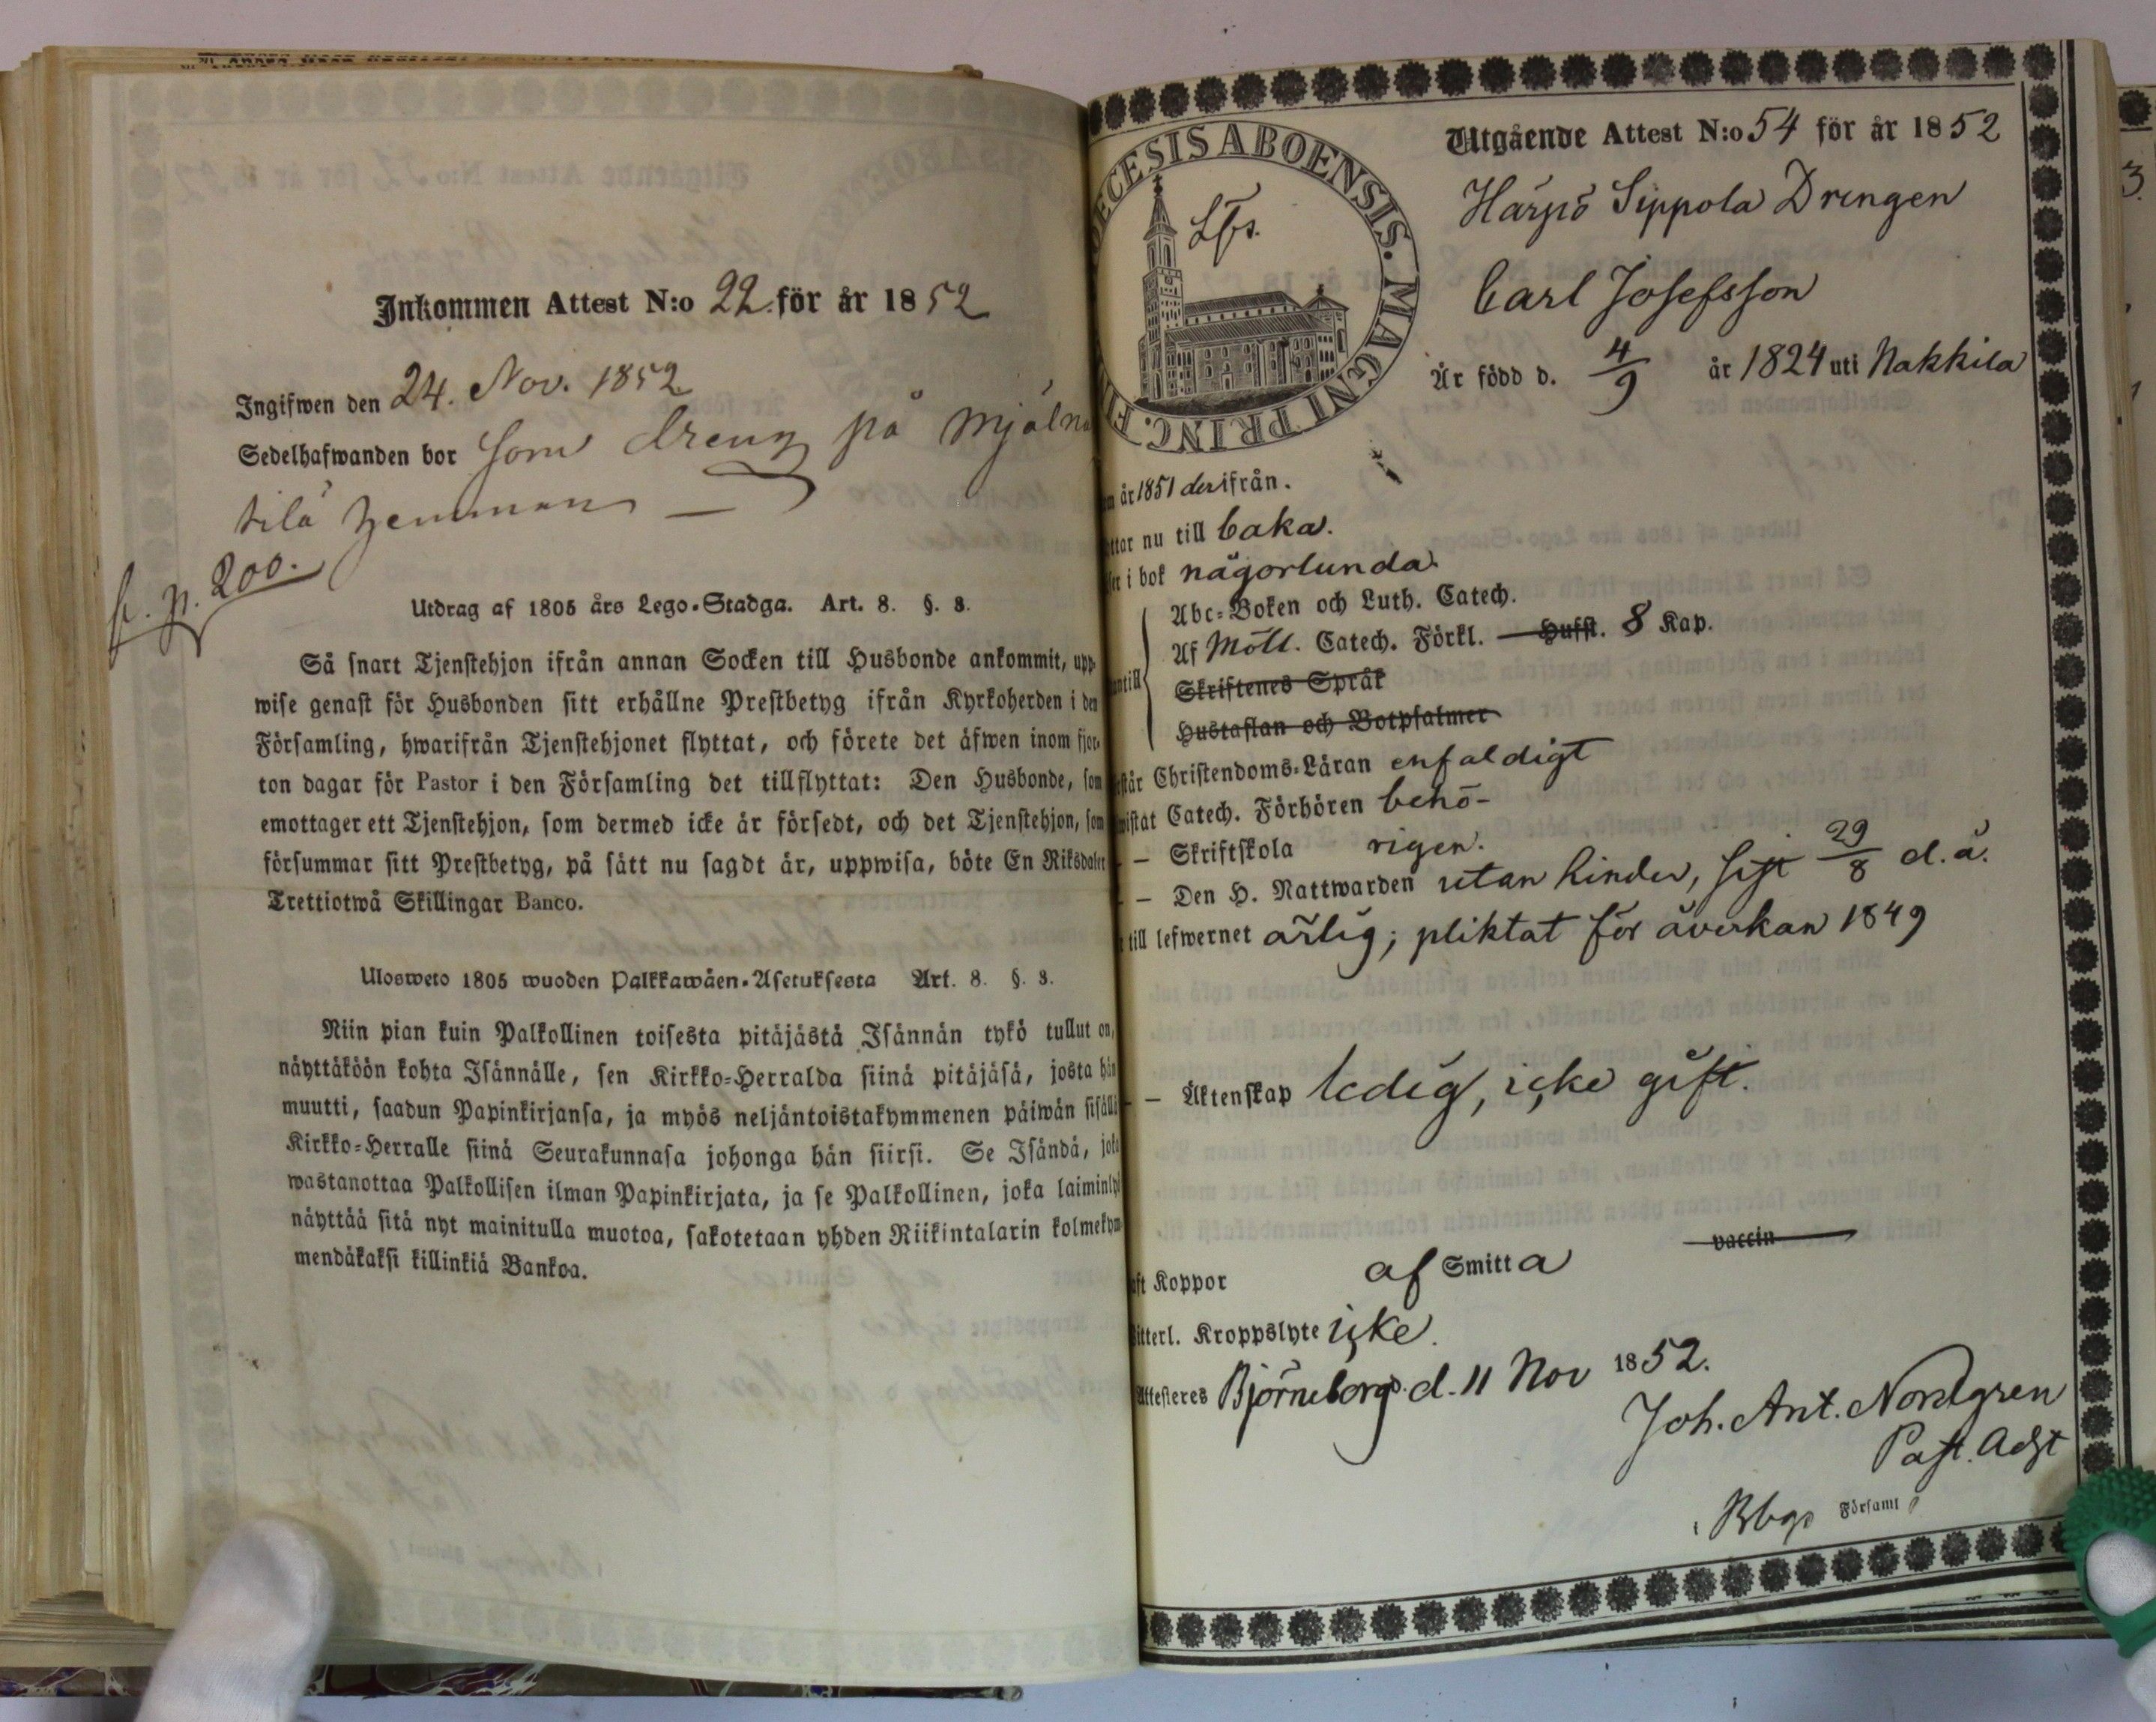 Inkommen Attest N:o 22. för år 1852
Ingifwen den 24. Nov. 1852
Sedelhafwanden bor som dreng på Mjöln
tilä hemman —
p. 200.
Utdrag af 1805 års Lego-Stadga. Art. 8. §. 3.
Så snart Tjenstehjon ifrån annan Socken till Husbonde ankommit, upp-
wise genast för Husbonden sitt erhållne Prestbetyg ifrån Kyrkoherden i den
Församling, hwarifrån Tjenstehjonet flyttat, och förete det äfwen inom fjor-
ton dagar för Pastor i den Församling det tillflyttat: Den Husbonde, som
emottager ett Tjenstehjon, som dermed icke är försedt, och det Tjenstehjon, som
försummar sitt Prestbetyg, på sätt nu sagdt är, uppwisa, böte En Riksdaler
Trettiotwå Skillingar Banco.
Ulosweto 1805 wuoden Palkkawäen-Asetuksesta Art. 8. §. 3.
Niin pian kuin Palkollinen toisesta pitäjästä Isännän tykö tullut on,
näyttäköön kohta Isännälle, sen Kirkko-Herralda siinä pitäjäsä, josta hän
muutti, saadun Papinkirjansa, ja myös neljäntoistakymmenen päiwän sisällä
Kirkko-Herralle siinä Seurakunnasa johonga hän siirsi. Se Isändä, joka
wastanottaa Palkollisen ilman Papinkirjata, ja se Palkollinen, joka laiminlyö
näyttää sitä nyt mainitulla muotoa, sakotetaan yhden Riikintalarin kolmekym-
mendäkaksi killinkiä Bankoa.
DECESIS ABOENSIS. MAGNI PRINC. FI
Utgående Attest N:o 54 för år 1852
Harjo Sippola Drengen
Carl Josefsson
Är född d. 4/9 år 1824 uti Nakkila
år 1851 derifrån.
ttar nu till baka.
i bok någorlunda.
Abc-Boken och Luth. Catech.
Af Möll. Catech. Förkl. — Husft. 8 Kap.
Skriftenes Språk
Hustaflan och Botpsalmer
står Christendoms-Läran enfaldigt
wistat Catech. Förhören behö-
— Skriftskola rigen.
— Den H. Nattwarden utan hinder, sist 29/8 d. å.
till lefwernet ärlig; pliktat för åverkan 1849
— Äktenskap ledig, icke gift.
vaccin
ft Koppor af Smitta
tterl. Kroppslyte icke.
Attesteres Björneborg d. 11 Nov 1852.
Joh. Ant. Nordgren
Past. Adjt
i Bbgs Församl